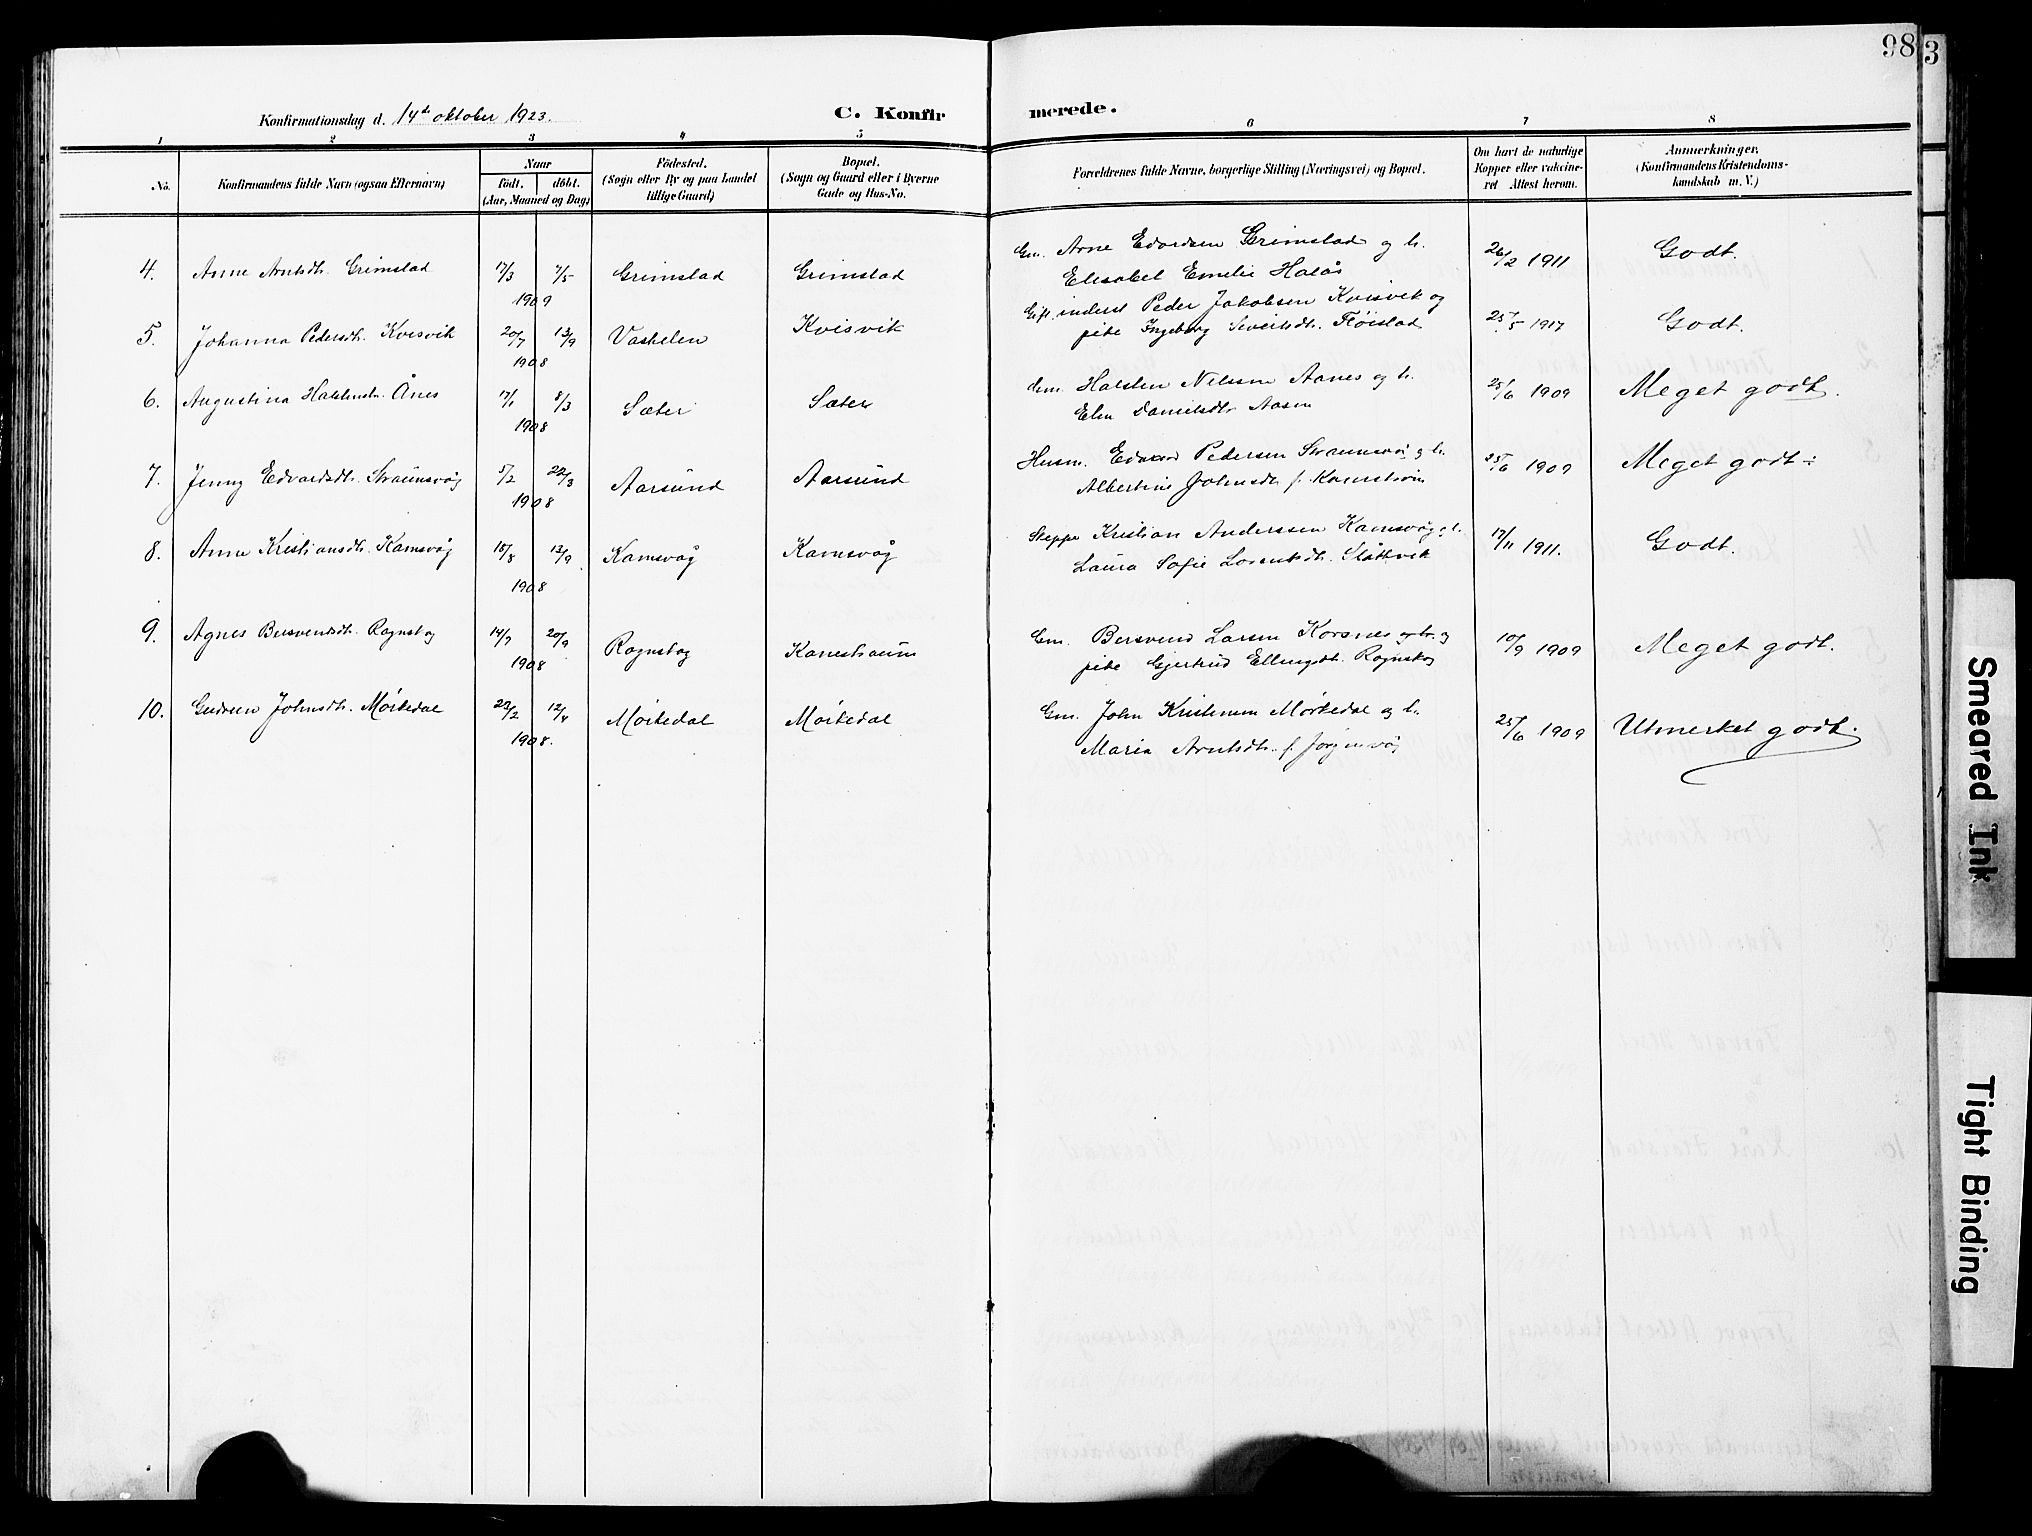 98
3
Konfirmationsdag d. 14de oktober 1923.
C. Konfirmerede.
1 2 3 4 5 6 7 8
No.
Konfirmandens fulde Navn (ogsaa Efternavn)
Naar
født. døbt.
(Aar, Maaned og Dag)
Fødested.
(Sogn eller By og paa Landet
tillige Gaard)
Bopæl.
(Sogn og Gaard eller i Byerne
Gade og Hus-No.
Forældrenes fulde Navne, borgerlige Stilling (Næringsvei) og Bopæl.
Om havt de naturlige
Kopper eller vakcine-
ret Attest herom.
Anmerkninger.
(Konfirmandens Kristendoms-
kundskab m. V.)
4. Anne Arntsdtr. Grimstad 17/3 7/5 1909 Grimstad Grimstad
Gm. Arne Edvardsen Grimstad og h.
Elisabet Emelie Halås
26/2 1911 Godt.
5. Johanna Pedersdtr. Kvisvik 20/7 13/9 1908 Vaskelen Kvisvik
Gift inderst Peder Jakobsen Kvisvik og
pike Ingeborg Sivertsdtr. Fløistad
25/5 1917 Godt.
6. Augustina Halstensdtr. Ånes 17/1 8/3 1908 Sæter Sæter
Gm. Halsten Nilssen Aanes og h.
Elen Danielsdtr. Aasen
25/6 1909 Meget godt.
7. Jenny Edvardsdtr. Straumsvåg 5/2 22/3 1908 Aarsund Aarsund
Husm. Edvard Pedersen Straumsvåg og h.
Albertine Johnsdtr f. Kanestrøm
25/6 1909 Meget godt.
8. Anna Kristiansdtr. Kamsvåg 18/8 13/9 1908 Kamsvåg Kamsvåg
Kristian Anderssen Kamsvåg og h.
Laura Sofie Lorentsdtr. Slåttvik
17/11 1911. Godt.
9. Agnes Bersvendsdtr. Rognskog 14/7 20/9 1908 Rognskog Kanestraum
Gm. Bersvend Larsen Korsnes og
pike Gjertrud Ellingsdtr. Rognskog
10/9 1909 Meget godt.
10. Gudrun Johnsdtr. Mørkedal 22/2 12/4 1908. Mørkedal Mørkedal
Gm. John Kristensen Mørkedal og h.
Maria Arntsdtr. f. Jørgenvåg
25/6 1909 Utmerket godt.
Smeared Ink
Tight Binding